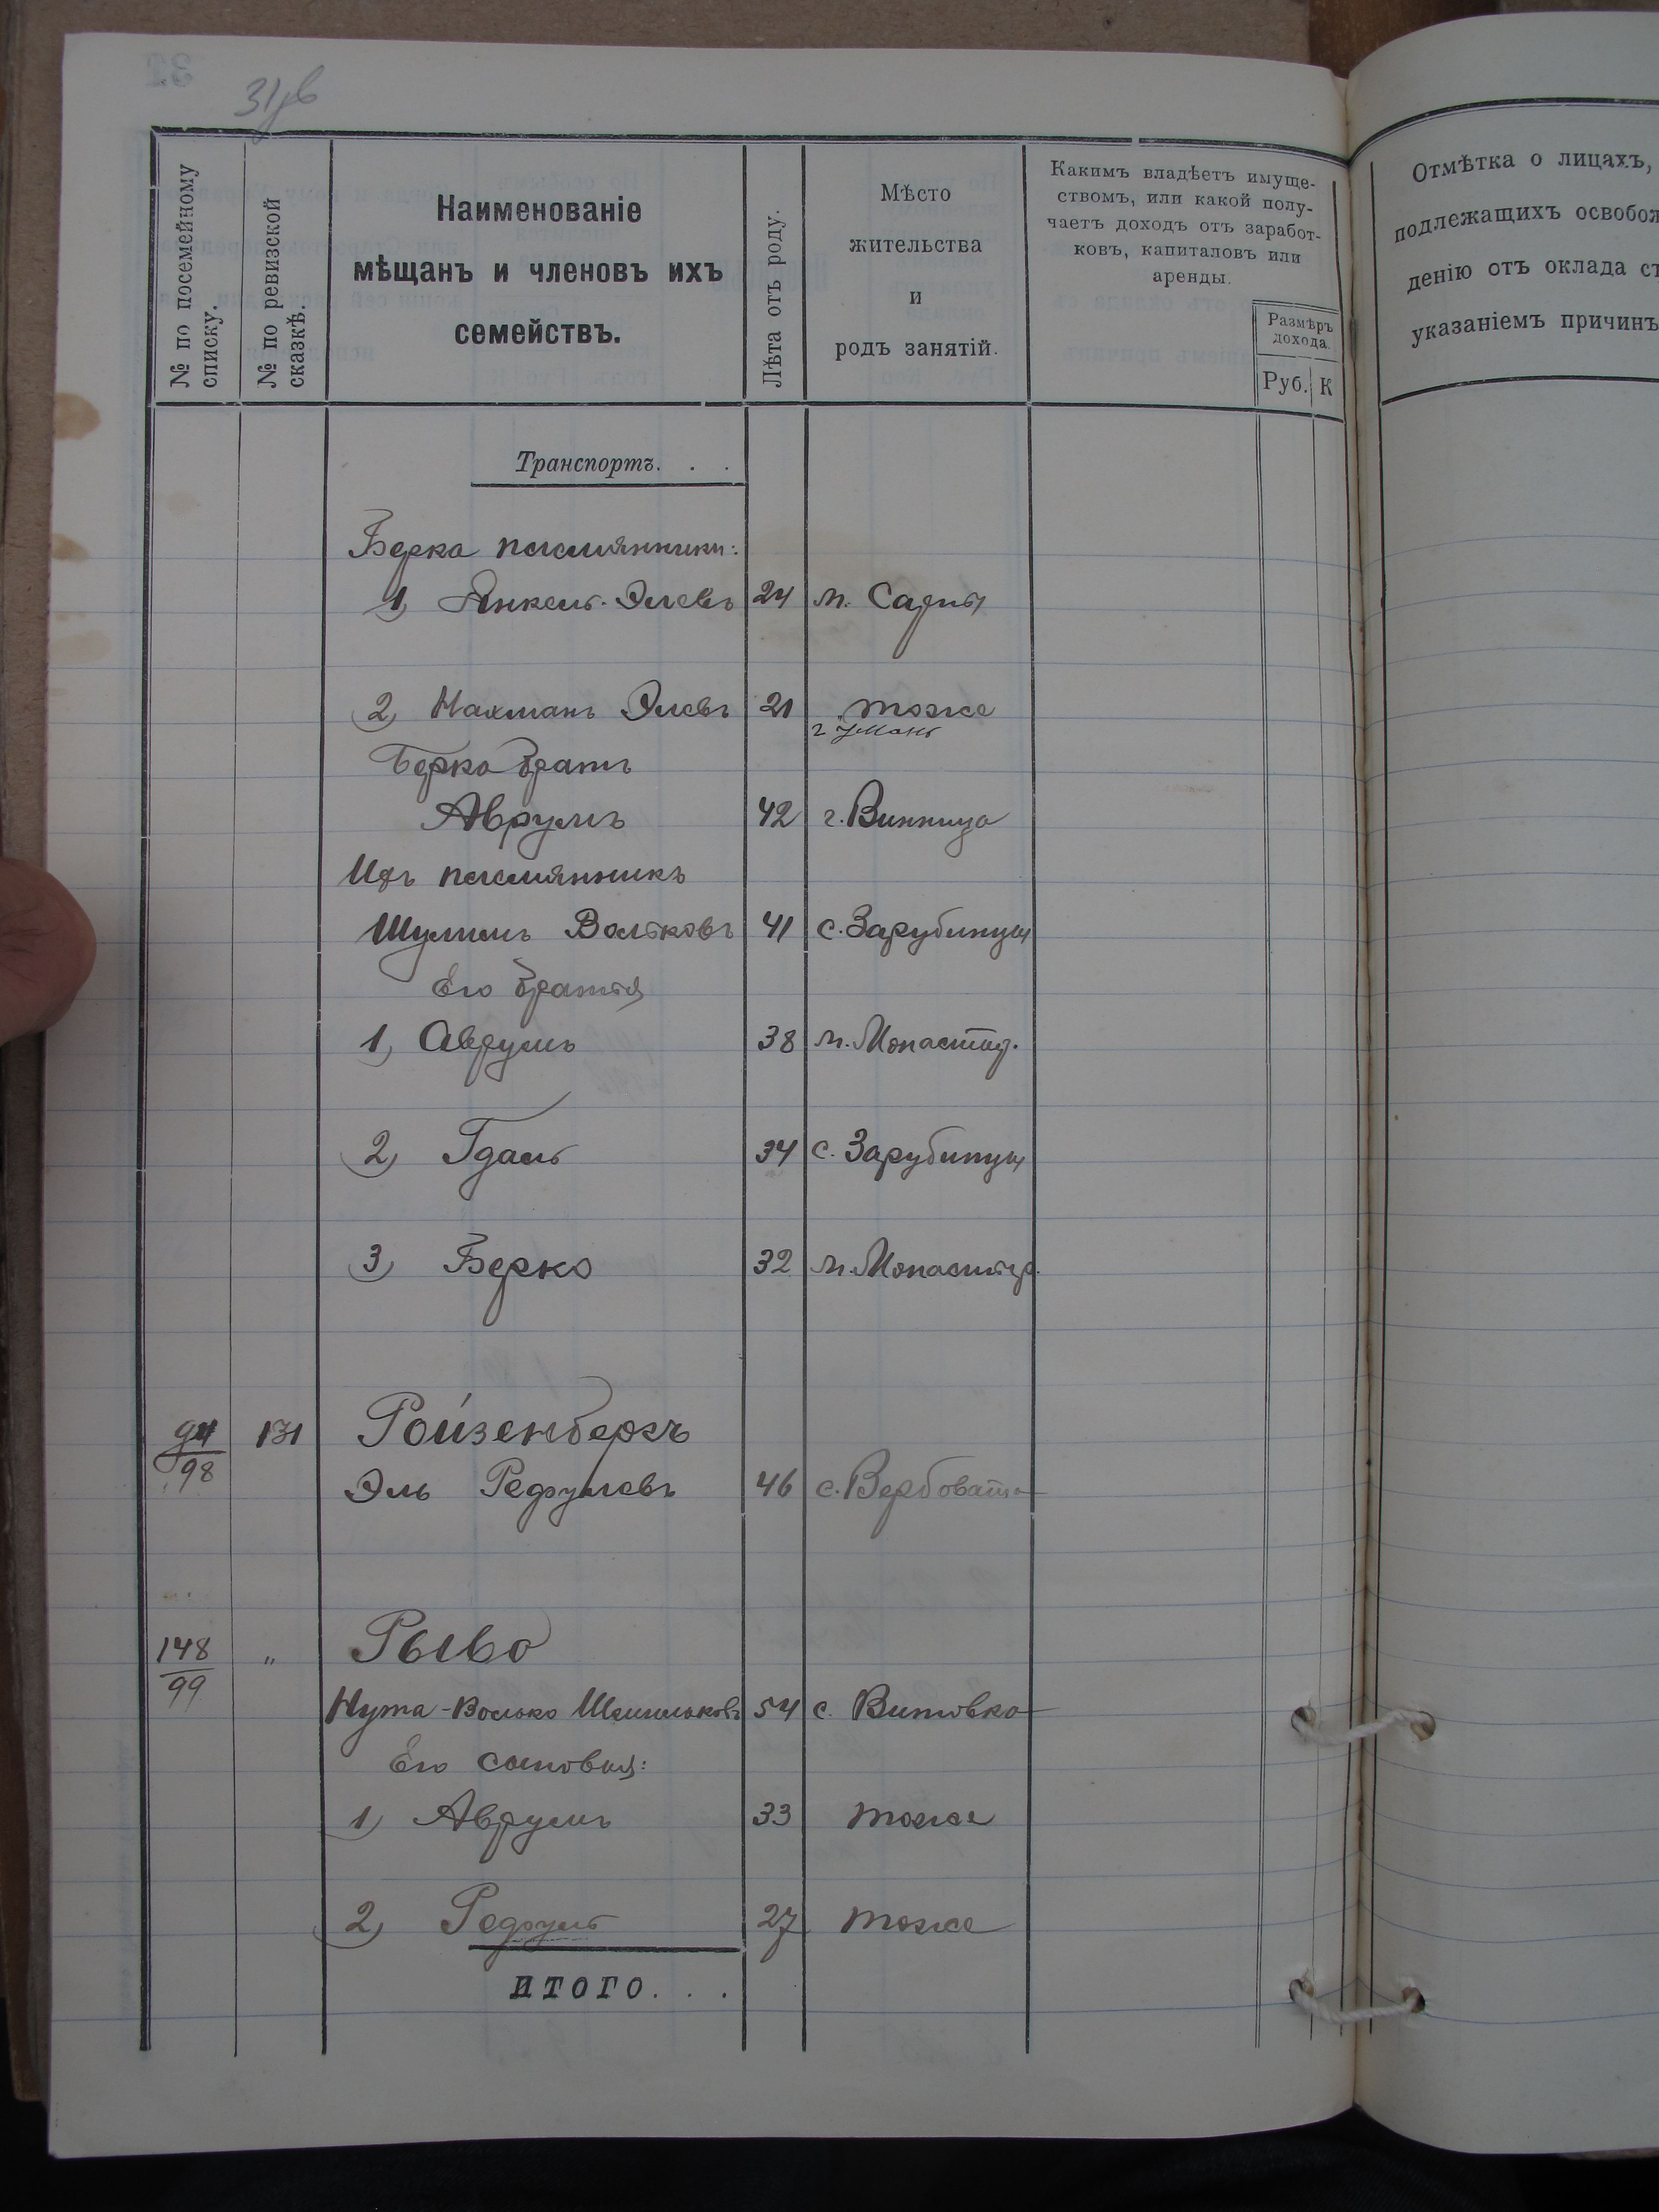 31об
№ по посемейному списку.
№ по ревизской сказкѣ.
Наименованіе
мѣщанъ и членовъ ихъ
семействъ.
Лѣта отъ роду.
Мѣсто
жительства
и
родъ занятій.
Какимъ владѣетъ имуще-
ствомъ, или какой полу-
чаетъ доходъ отъ заработ-
ковъ, капиталовъ или
аренды.
Размѣръ
дохода.
Руб. К
Отмѣтка о лицахъ,
подлежащихъ освобож
денію отъ оклада съ
указаніемъ причинъ
Транспортъ. . .
Берка племянники:
1) Янкель Элевъ 24 м.
2) Нахманъ Элевъ 21 тоже
г Умань
Берко братъ
Аврумъ 42 г. Винница
Ихъ племянникъ
Шулимъ Вольковъ 41 с. Зарубинцы
Его братья
1) Аврумъ 38 м. Монастыр.
2) Гдаль 34 с. Зарубинцы
3) Берко 32 м. Монастыр.
94/98 131 Ройзенбергъ
Эль Рефулевъ 46 с. Вербовата
148/99 „ Рыво
Нута-Волько 54 с. Витовка
Его сыновья:
1) Аврумъ 33 тоже
2) Рефуль 27 тоже
ИТОГО. . .